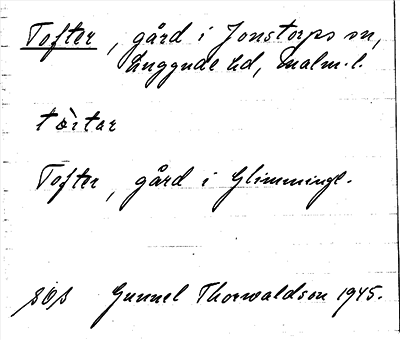 Tofter, gård i Jonstorps sn,
Luggude hd, malm. l.
Tofter, gård i Glimminge.
Gunnel Thorwaldson 1945.